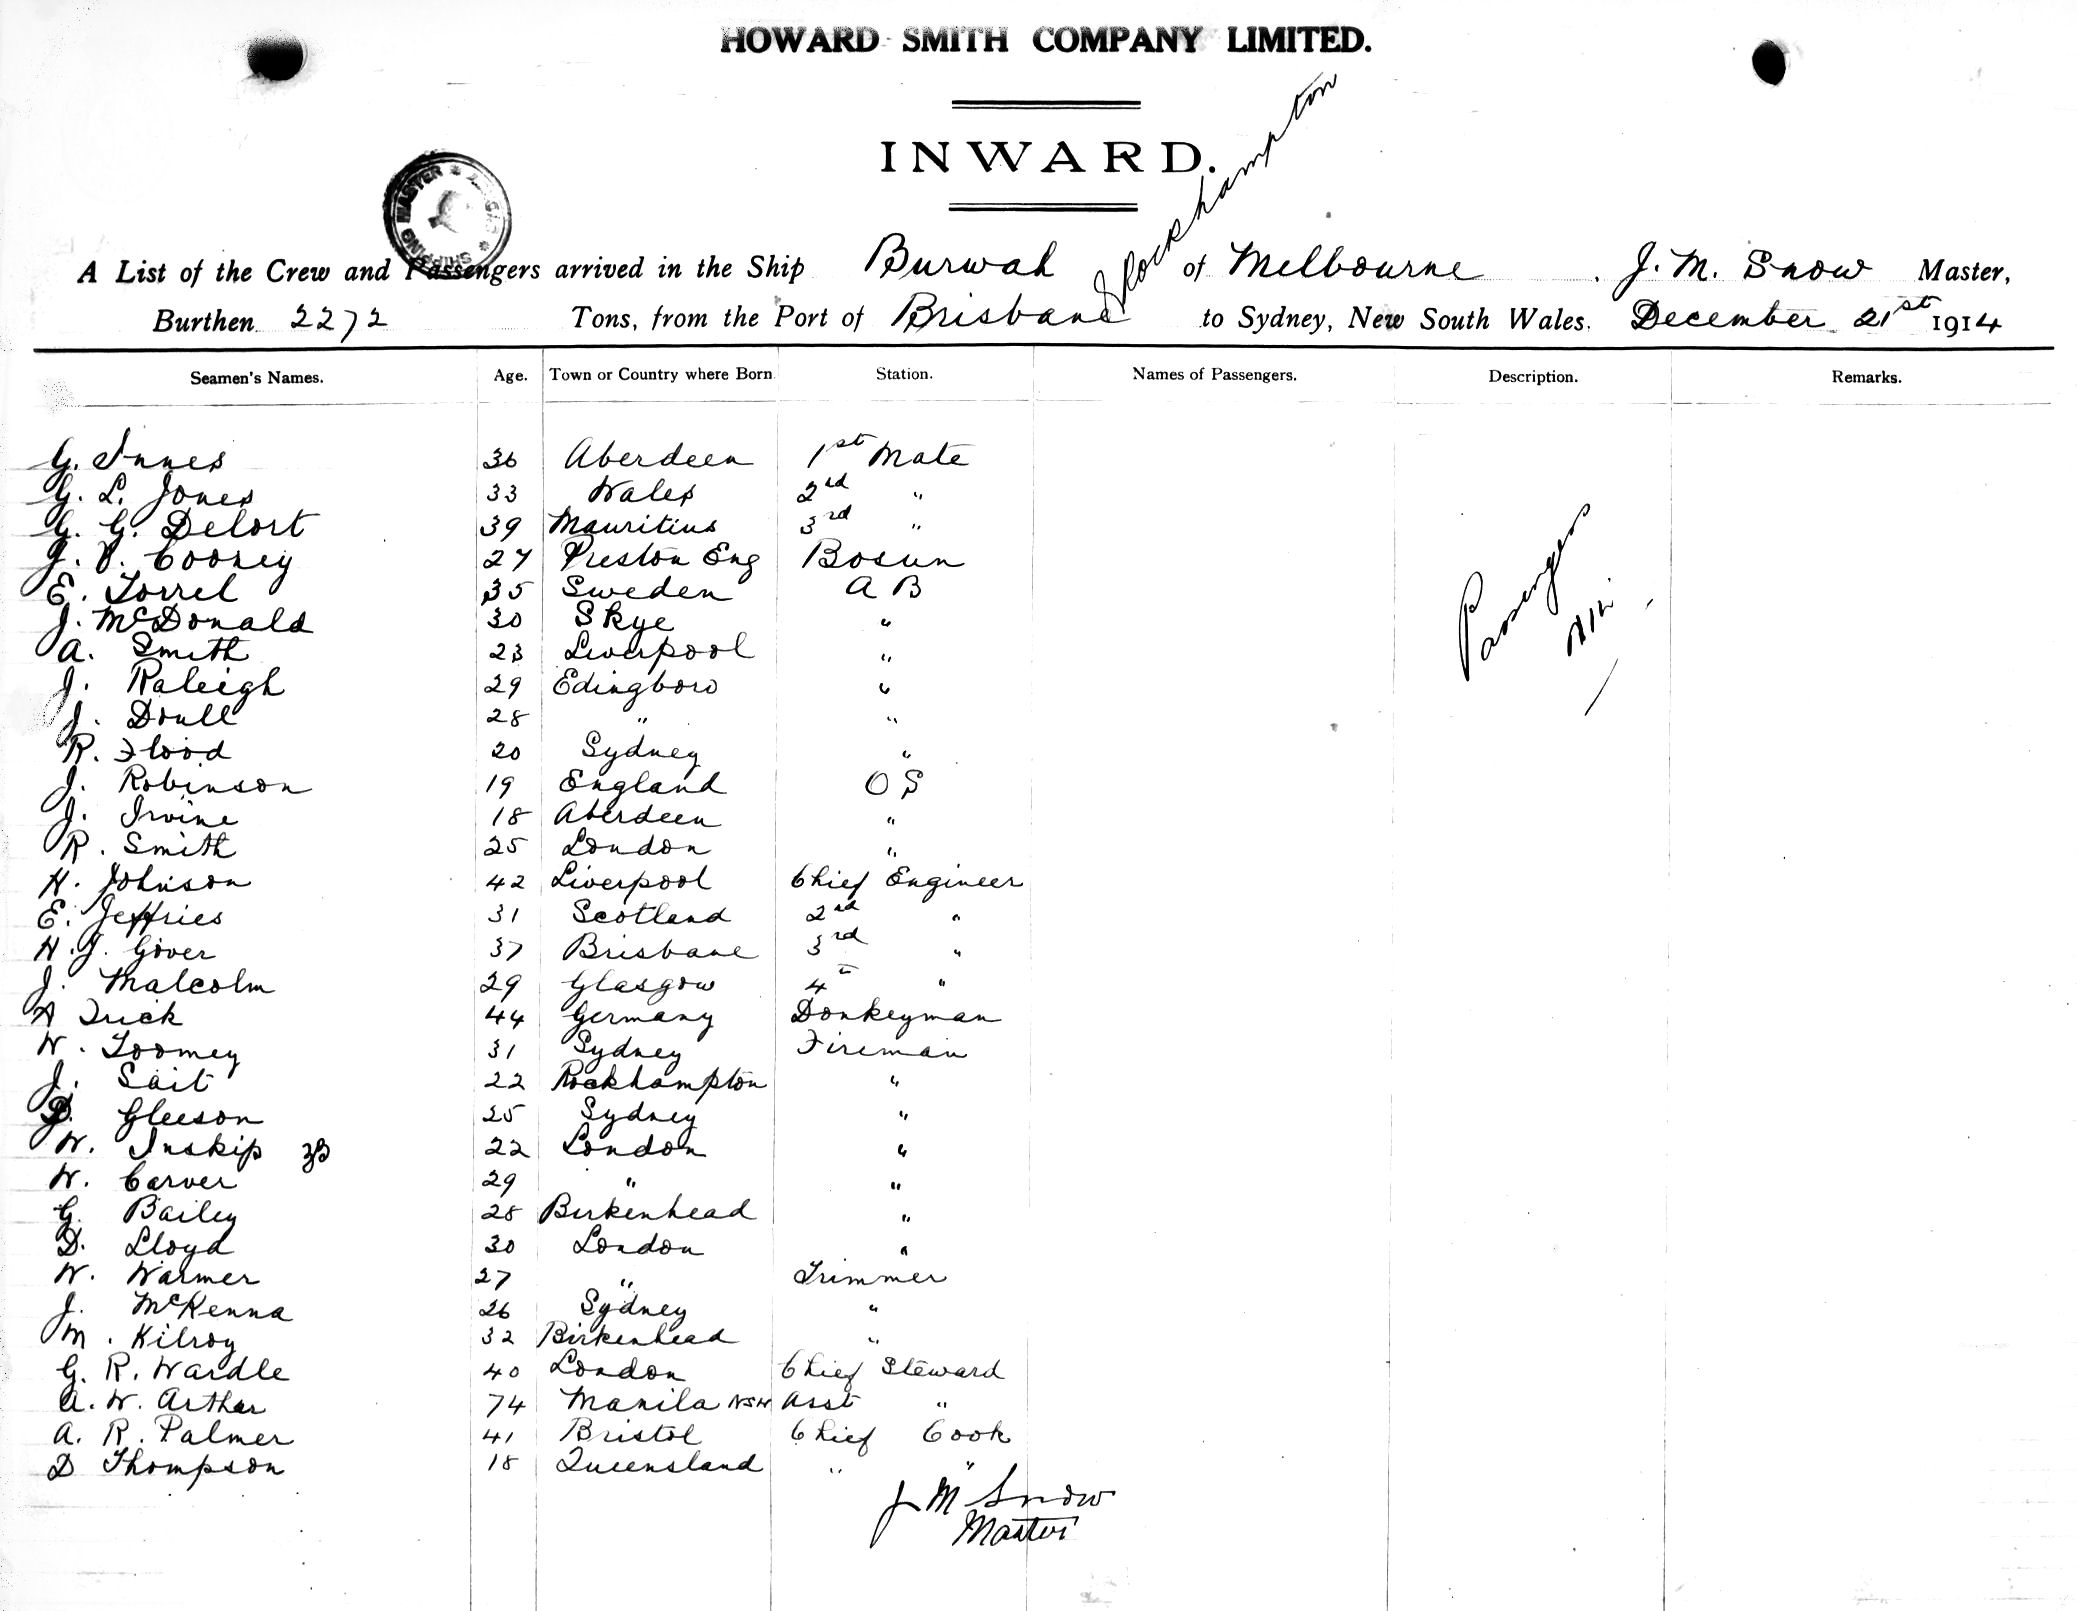 HOWARD SMITH COMPANY LIMITED.
INWARD.
SHIPPING MASTER
& Rockhampton
A List of the Crew and Passengers arrived in the Ship Burwah of Melbourne J. M. Snow Master,
Burthen 2272 Tons, from the Port of Brisbane to Sydney, New South Wales. December 21st 1914
Seamen's Names. Age. Town or Country where Born Station. Names of Passengers. Description. Remarks.
G. Innes 36 Aberdeen 1st Mate
G. L. Jones 33 Wales 2nd "
G. G. Delort 39 Mauritius 3rd "
J. V. Cooney 27 Preston Eng Bosun
E. Torrel 35 Sweden A B
J. McDonald 30 Skye "
A. Smith 23 Liverpool "
J. Raleigh 29 Edingboro "
J. Doull 28 " "
R. Flood 20 Sydney "
J. Robinson 19 England O S
J. Irvine 18 Aberdeen "
R. Smith 25 London "
H. Johnson 42 Liverpool Chief Engineer
E. Jeffries 31 Scotland 2nd "
H. J. Gover 37 Brisbane 3rd "
J. Malcolm 29 Glasgow 4th "
A Trick 44 Germany Donkeyman
W. Toomey 31 Sydney Fireman
J. Sait 22 Rockhampton "
D. Gleeson 25 Sydney "
W. Inskip 22 London "
W. Carver 29 " "
G. Bailey 28 Berkenhead "
D. Lloyd 30 London "
W. Warmer 27 " Trimmer
J. McKenna 26 Sydney "
M. Kilroy 32 Birkenhead "
G. R. Wardle 40 London Chief Steward
A. W. Arthur 74 Manila NSW Asst "
A. R. Palmer 41 Bristol Chief Cook
D Thompson 18 Queensland " "
Passengers
Nil
J M Snow
Master